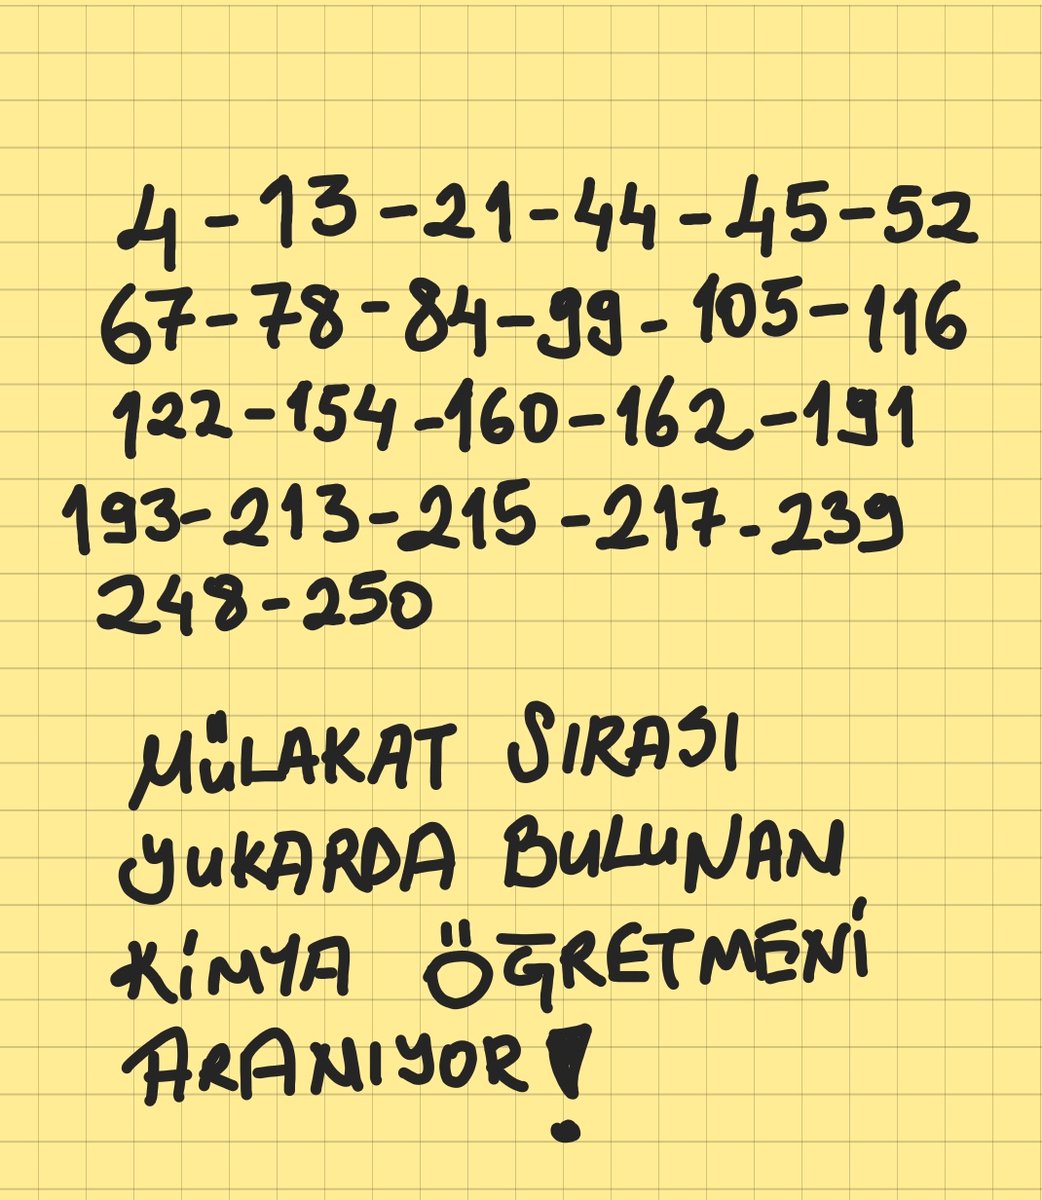 4-13-21-44-45-52
67-78-84-99-105-116
122-154-160-162-191
193-213-215-217-239
248-250
MÜLAKAT SIRASI
YUKARDA BULUNAN
KİMYA ÖĞRETMENİ
ARANIYOR!